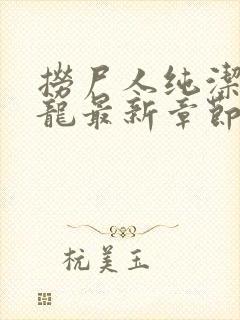 撈尸人纯潔
龍最新章節
杭美玉